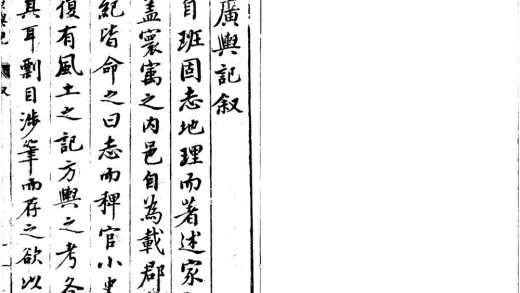 廣輿記叙
自班固志地理而著述家
蓋寰寓之内邑自為載郡
紀皆命之曰志而稗官小史
復有風土之記方輿之考各
其耳剽目涉筆而存之欲以